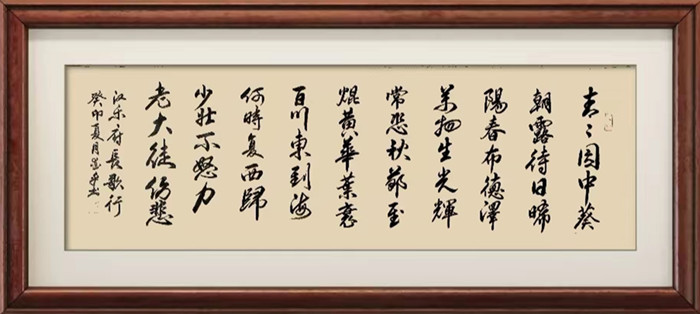 青〻園中葵
朝露待日晞
陽春布德澤
萬物生光輝
常恐秋節至
焜黄華葉衰
百川東到海
何時复西歸
少壮不努力
老大徒傷悲
汉乐府長歌行
癸卯夏月